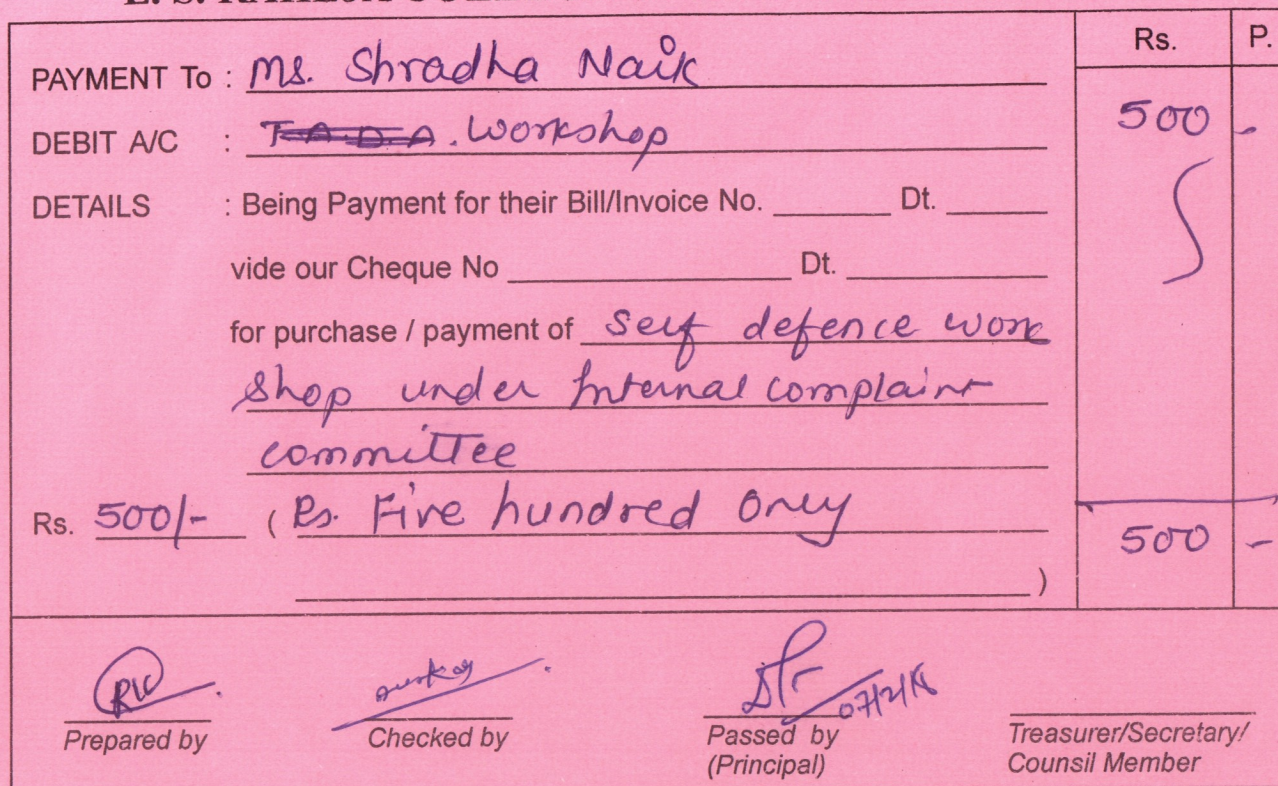 Rs. P.
PAYMENT To : Ms. Shradha Naik
500 -
DEBIT A/C : T.A.D.A. Workshop
DETAILS : Being Payment for their Bill/Invoice No. Dt.
vide our Cheque No Dt.
for purchase / payment of Self defence work
shop under Internal complaint
committee
Rs. 500/- ( Rs. Five hundred Only
500 -
)
07/2/18
Prepared by Checked by Passed by Treasurer/Secretary/
(Principal) Counsil Member